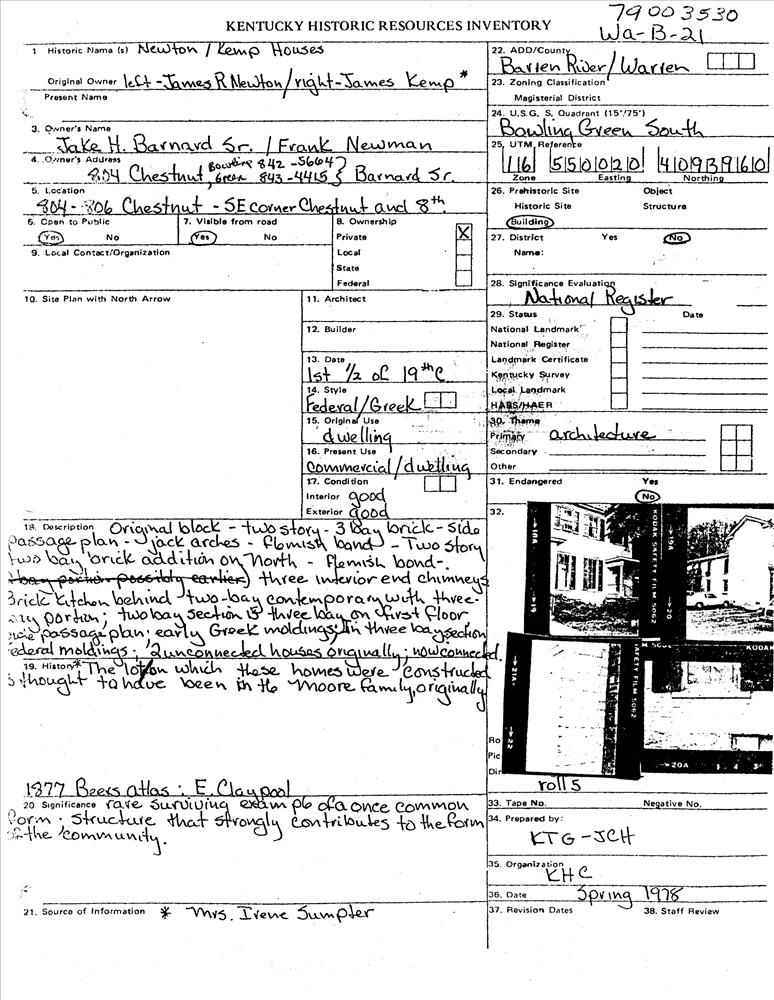 79003530
KENTUCKY HISTORIC RESOURCES INVENTORY
Wa-B-21
1 Historic Name(s) Newton / Kemp Houses
Original Owner left-James R Newton/right-James Kemp *
Present Name
3. Owner's Name
Jake H. Barnard Sr. / Frank Newman
4. Owner's Address
804 Chestnut, Bowling Green 842-5664 843-4415 } Barnard Sr.
5. Location
804-806 Chestnut - SE corner Chestnut and 8th.
6. Open to Public
Yes No
7. Visible from road
Yes No
8. Ownership
Private X
Local
State
Federal
9. Local Contact/Organization
10. Site Plan with North Arrow
11. Architect
12. Builder
13. Date
1st 1/2 of 19th C
14. Style
Federal/Greek
15. Original Use
dwelling
16. Present Use
commercial/dwelling
17. Condition
Interior good
Exterior good
18. Description Original block - two story - 3 bay brick - side
passage plan - jack arches - flemish bond - Two story
two bay brick addition on North - flemish bond -.
bay portion possibly earlier) three interior end chimneys
Brick kitchen behind two-bay contemporary with three-
bay portion; two bay section is three bay on first floor
side passage plan; early Greek moldings; in three bay section
Federal moldings; 2 unconnected houses originally; now connected.
19. History * The lot on which these homes were constructed
is thought to have been in the Moore family, originally
1877 Beers atlas: E. Claypool
20 Significance rare surviving example of a once common
form. Structure that strongly contributes to the form
of the community.
21. Source of Information * Mrs. Irene Sumpter
22. ADD/County
Barren River/Warren
23. Zoning Classification
Magisterial District
24. U.S.G. S, Quadrant (15'/75')
Bowling Green South
25. UTM Reference
16 550020 4093960
Zone Easting Northing
26. Prehistoric Site Object
Historic Site Structure
Building
27. District Yes No
Name:
28. Significance Evaluation
National Register
29. Status Date
National Landmark
National Register
Landmark Certificate
Kentucky Survey
Local Landmark
HABS/HAER
30. Theme
Primary architecture
Secondary
Other
31. Endangered Yes
No
32.
KODAK SAFETY FILM 5062
SAFETY FILM 5062
KODAK
20A
Ro
Pic
Dir
roll 5
33. Tape No. Negative No.
34. Prepared by:
KTG-JCH
35. Organization
KHC
36. Date Spring 1978
37. Revision Dates 38. Staff Review